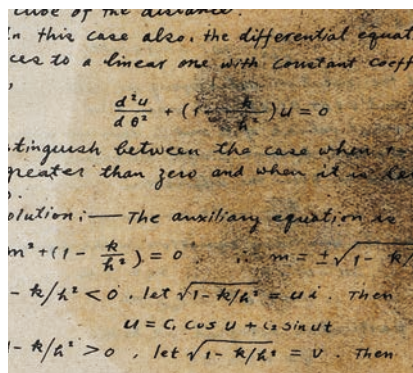 cube of the distance.
In this case also, the differential equat
ces to a linear one with constant coeff
d²u/dθ² + (1 - k/h²)u = 0
stinguish between the case when
greater than zero and when it is les
olution: — The auxiliary equation is
m² + (1 - k/h²) = 0 ∴ m = ±√1 - k/
- k/h² < 0, let √1 - k/h² = ui. Then
u = C₁ cos u + C₂ sin ut
- k/h² > 0, let √1 - k/h² = v. Then